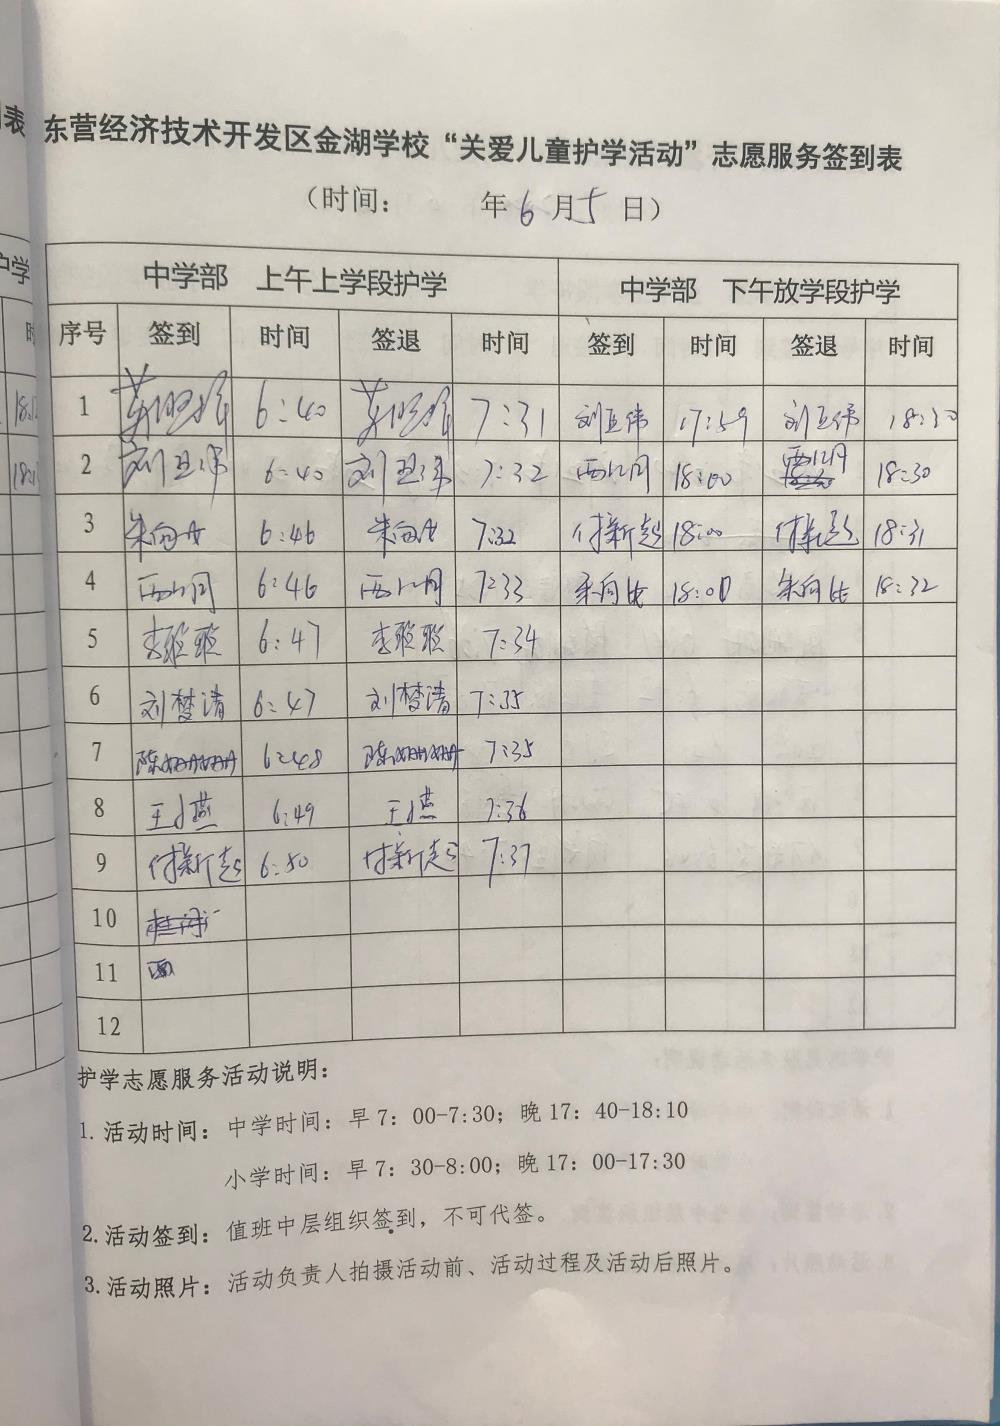 表
东营经济技术开发区金湖学校“关爱儿童护学活动”志愿服务签到表
（时间： 年 6 月 5 日）
中学部 上午上学段护学 中学部 下午放学段护学
序号 签到 时间 签退 时间 签到 时间 签退 时间
1 6:40 7:31 刘卫伟 17:59 刘卫伟 18:30
2 刘卫伟 6:40 刘卫伟 7:32 18:00 18:30
3 6:46 7:32 付新起 18:00 付新起 18:31
4 6:46 7:33 18:01 18:32
5 6:47 7:34
6 刘梦清 6:47 刘梦清 7:35
7 陈姗姗 6:48 陈姗姗 7:35
8 王小燕 6:49 王小燕 7:36
9 付新起 6:50 付新起 7:37
10
11 西
12
护学志愿服务活动说明：
1. 活动时间：中学时间：早 7：00-7:30；晚 17：40-18:10
小学时间：早 7：30-8:00；晚 17：00-17:30
2. 活动签到：值班中层组织签到，不可代签。
3. 活动照片：活动负责人拍摄活动前、活动过程及活动后照片。